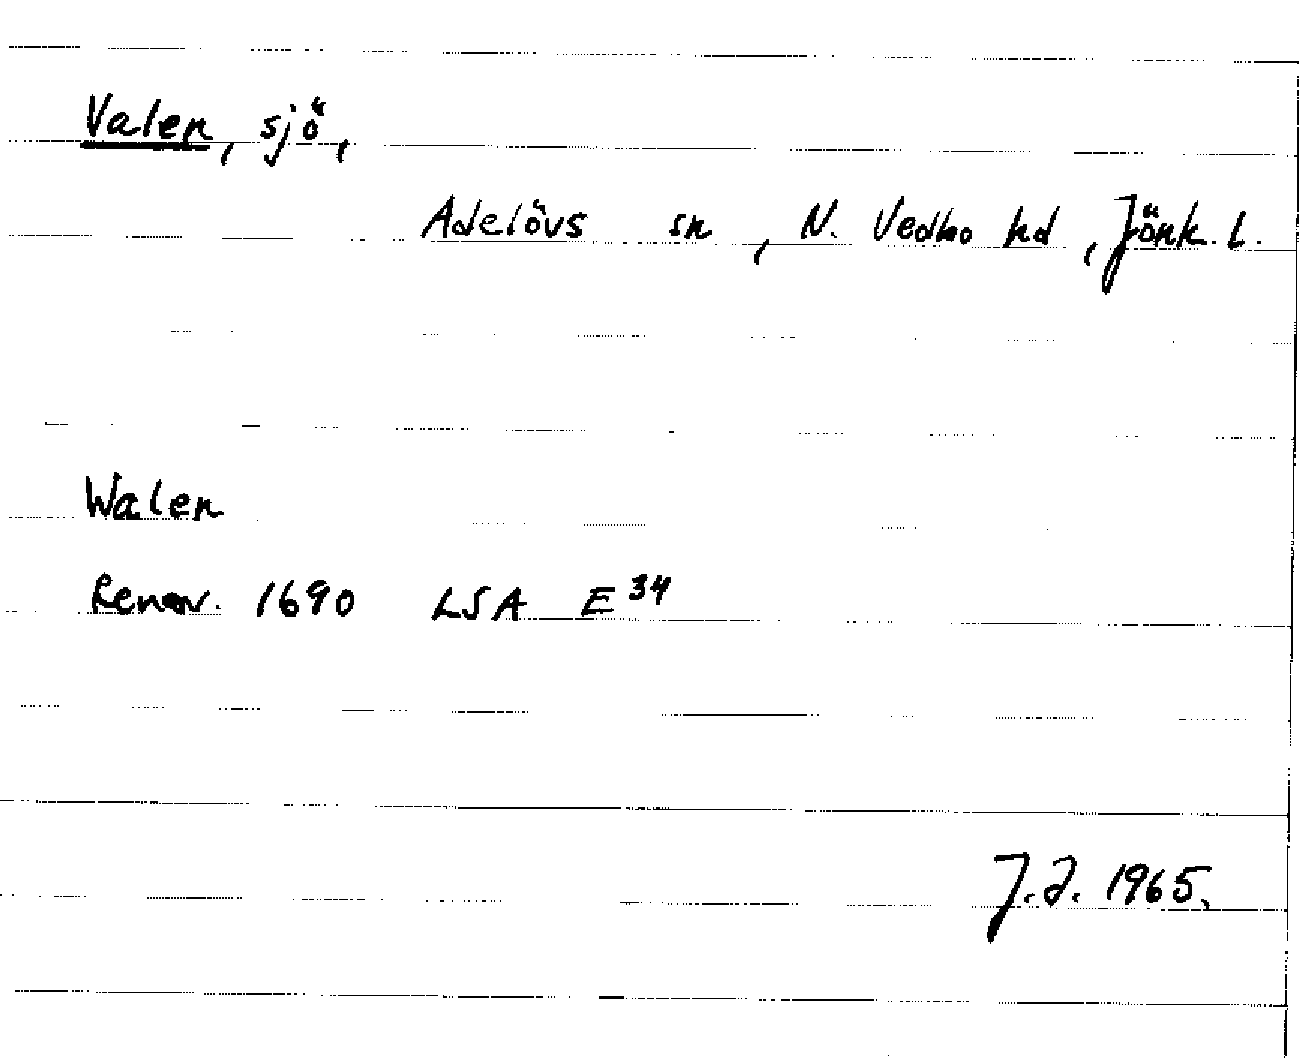 Valen, sjö,
Adelövs sn, N. Vedbo hd, Jönk. L.
Walen
Renov. 1690 LSA E 34
J.J. 1965.